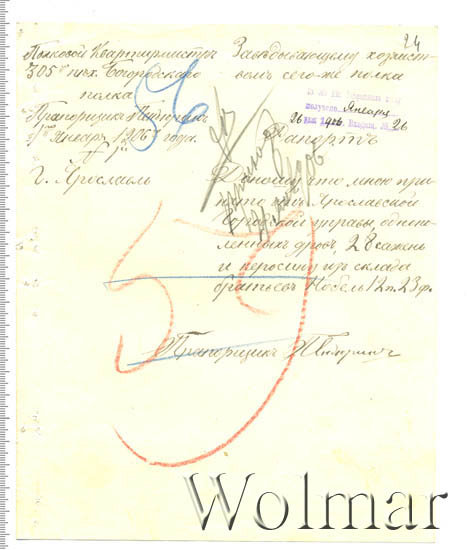 24
Полковой Квартирмистръ
305го пѣх. Богородскаго
полка
Прапорщикъ
Января 1906 года.
г. Ярославль
56
Завѣдывающему хозяйст-
вомъ сего-же полка
получено Января
26 дня 1906. Входящ. № 26
Рапортъ
Доношу, что мною при-
нято изъ Ярославской
Городской управы, одноп-
ленныхъ дровъ, 28 сажень
и керосину изъ склада
братьевъ Нобель 12 п. 23 ф.
Прапорщикъ
59
Wolmar